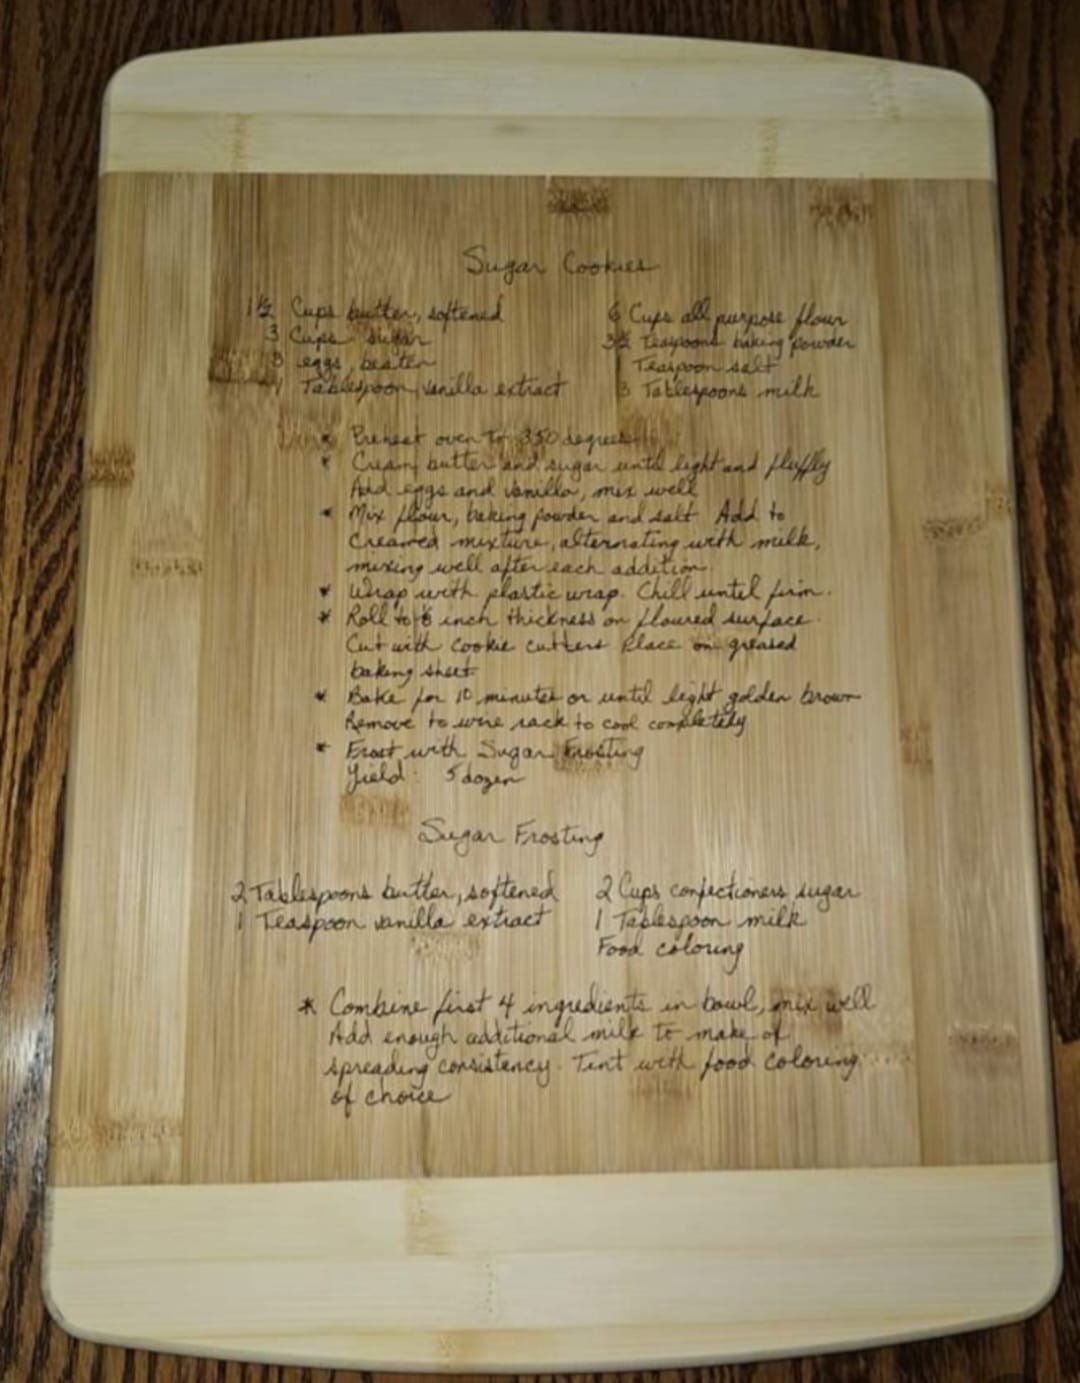 Sugar Cookies
1 1/2 Cups butter, softened
3 Cups sugar
3 eggs, beaten
1 Tablespoon vanilla extract
6 Cups all purpose flour
Teaspoons baking powder
1 Teaspoon salt
3 Tablespoons milk
* Preheat oven to 350 degrees
* Cream butter and sugar until light and fluffly
Add eggs and vanilla, mix well
* Mix flour, baking powder and salt Add to
creamed mixture, alternating with milk,
mixing well after each addition.
* Wrap with plastic wrap. Chill until firm.
* Roll to 1/8 inch thickness on floured surface.
Cut with cookie cutters Place on greased
baking sheet.
* Bake for 10 minutes or until light golden brown
Remove to wire rack to cool completely
* Frost with Sugar Frosting
Yield: 5 dozen
Sugar Frosting
2 Tablespoons butter, softened
1 Teaspoon vanilla extract
2 Cups confectioners sugar
1 Tablespoon milk
Food coloring
* Combine first 4 ingredients in bowl, mix well
Add enough additional milk to make of
spreading consistency. Tint with food coloring
of choice